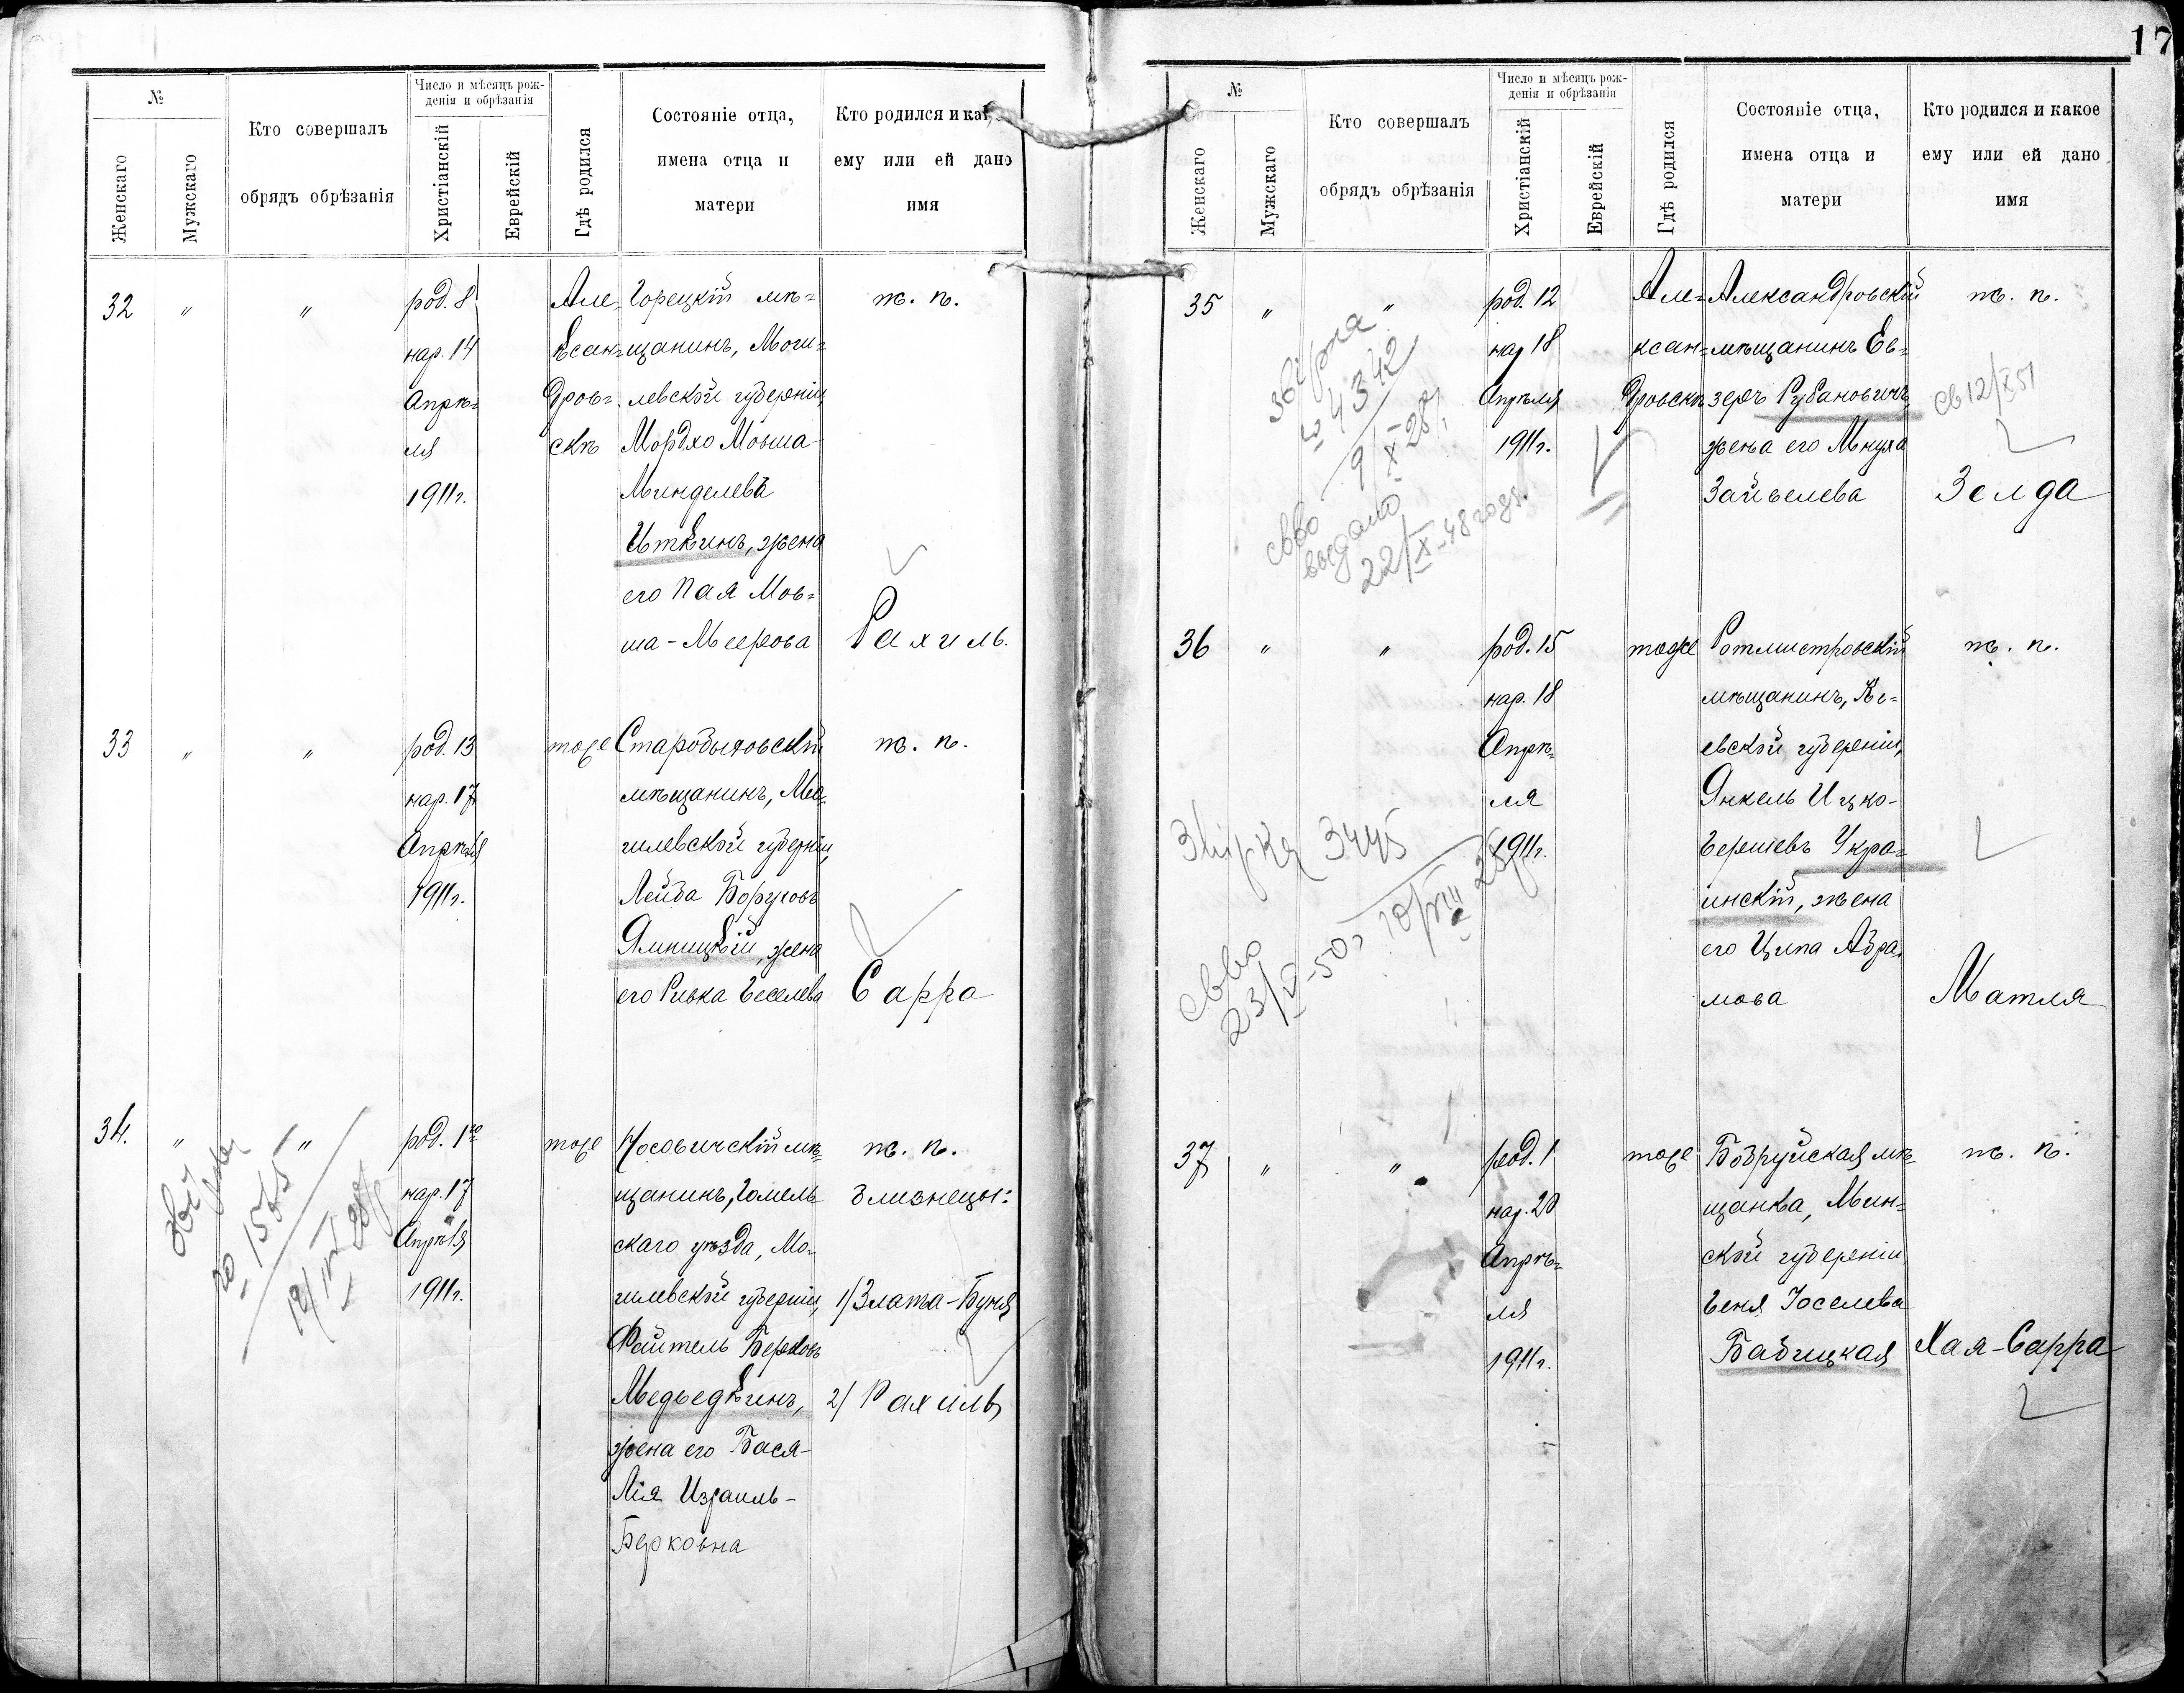 17
№
Женскаго
Мужскаго
Кто совершалъ
обрядъ обрѣзанія
Число и мѣсяцъ рож-
денія и обрѣзанія
Христіанскій
Еврейскій
Гдѣ родился
Состояніе отца,
имена отца и
матери
Кто родился и как
ему или ей дано
имя
32 " "
род. 8
нар. 14
Апрѣ=
ля
1911 г.
Але-
ксан=
дров=
скѣ
Горецкій мѣ=
щанинъ, Моги=
левской губерніи,
Мордхо Мовша-
Менделевъ
Иткинъ, жена
его Пая Мов=
ша-Меерова
ж. п.
Рахиль.
33 " "
род. 13
нар. 17
Апрѣля
1911 г.
тоже
Старобыховскій
мѣщанинъ, Мо-
гилевской губерніи,
Лейба Боруховъ
Ямницкій, жена
его Ривка Беселева
ж. п.
Сарра
34. " "
род. 1го
нар. 17
Апрѣля
1911 г.
тоже
Носовичскій мѣ-
щанинъ, Гомель
скаго уѣзда, Мо-
гилевской губерніи,
Файтель Берковъ
Медведкинъ,
жена его Бася-
Лія Израиль-
Берковна
ж. п.
близнецы:
1/ Злата-Буня
2/ Рахиль
1565
№
Женскаго
Мужскаго
Кто совершалъ
обрядъ обрѣзанія
Число и мѣсяцъ рож-
денія и обрѣзанія
Христіанскій
Еврейскій
Гдѣ родился
Состояніе отца,
имена отца и
матери
Кто родился и какое
ему или ей дано
имя
35 " "
род. 12
нар 18
Апрѣля
1911 г.
Але=
ксан=
дровскѣ
Александровскій
мѣщанинъ Ев=
зеръ Рубановичъ,
жена его Мнуха
Зайвелева
ж. п.
Зелда
св 12/X 51
звірка
№ 4342
9/X 28 р.
св-во
выдано
22/X-48 года.
36 " "
род. 15
нар. 18
Апрѣ-
ля
1911 г.
тоже
Ротмистровскій
мѣщанинъ, Кі-
евской губерніи,
Янкель Ицко-
Берковъ Укра=
инскій, жена
его Ципа Абра-
мова
ж. п.
Матля
Звірка 3445
св-во
37 " "
род. 1
нар. 20
Апрѣ=
ля
1911 г.
тоже
Бобруйская мѣ-
щанка, Мин=
ской губерніи
Беня Іоселева
Бабицкая
ж. п.
Хая-Сарра